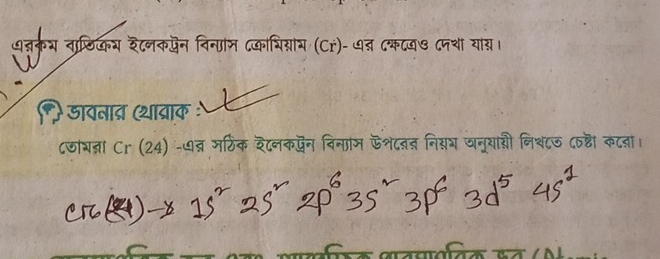 এরকম ব্যতিক্রম ইলেকট্রন বিন্যাস ক্রোমিয়াম (Cr)- এর ক্ষেত্রেও দেখা যায়।
ভাবনার খোরাক :
তোমরা Cr (24) -এর সঠিক ইলেকট্রন বিন্যাস উপরের নিয়ম অনুযায়ী লিখতে চেষ্টা করো।
Cr(24) → 1s² 2s² 2p⁶ 3s² 3p⁶ 3d⁵ 4s¹